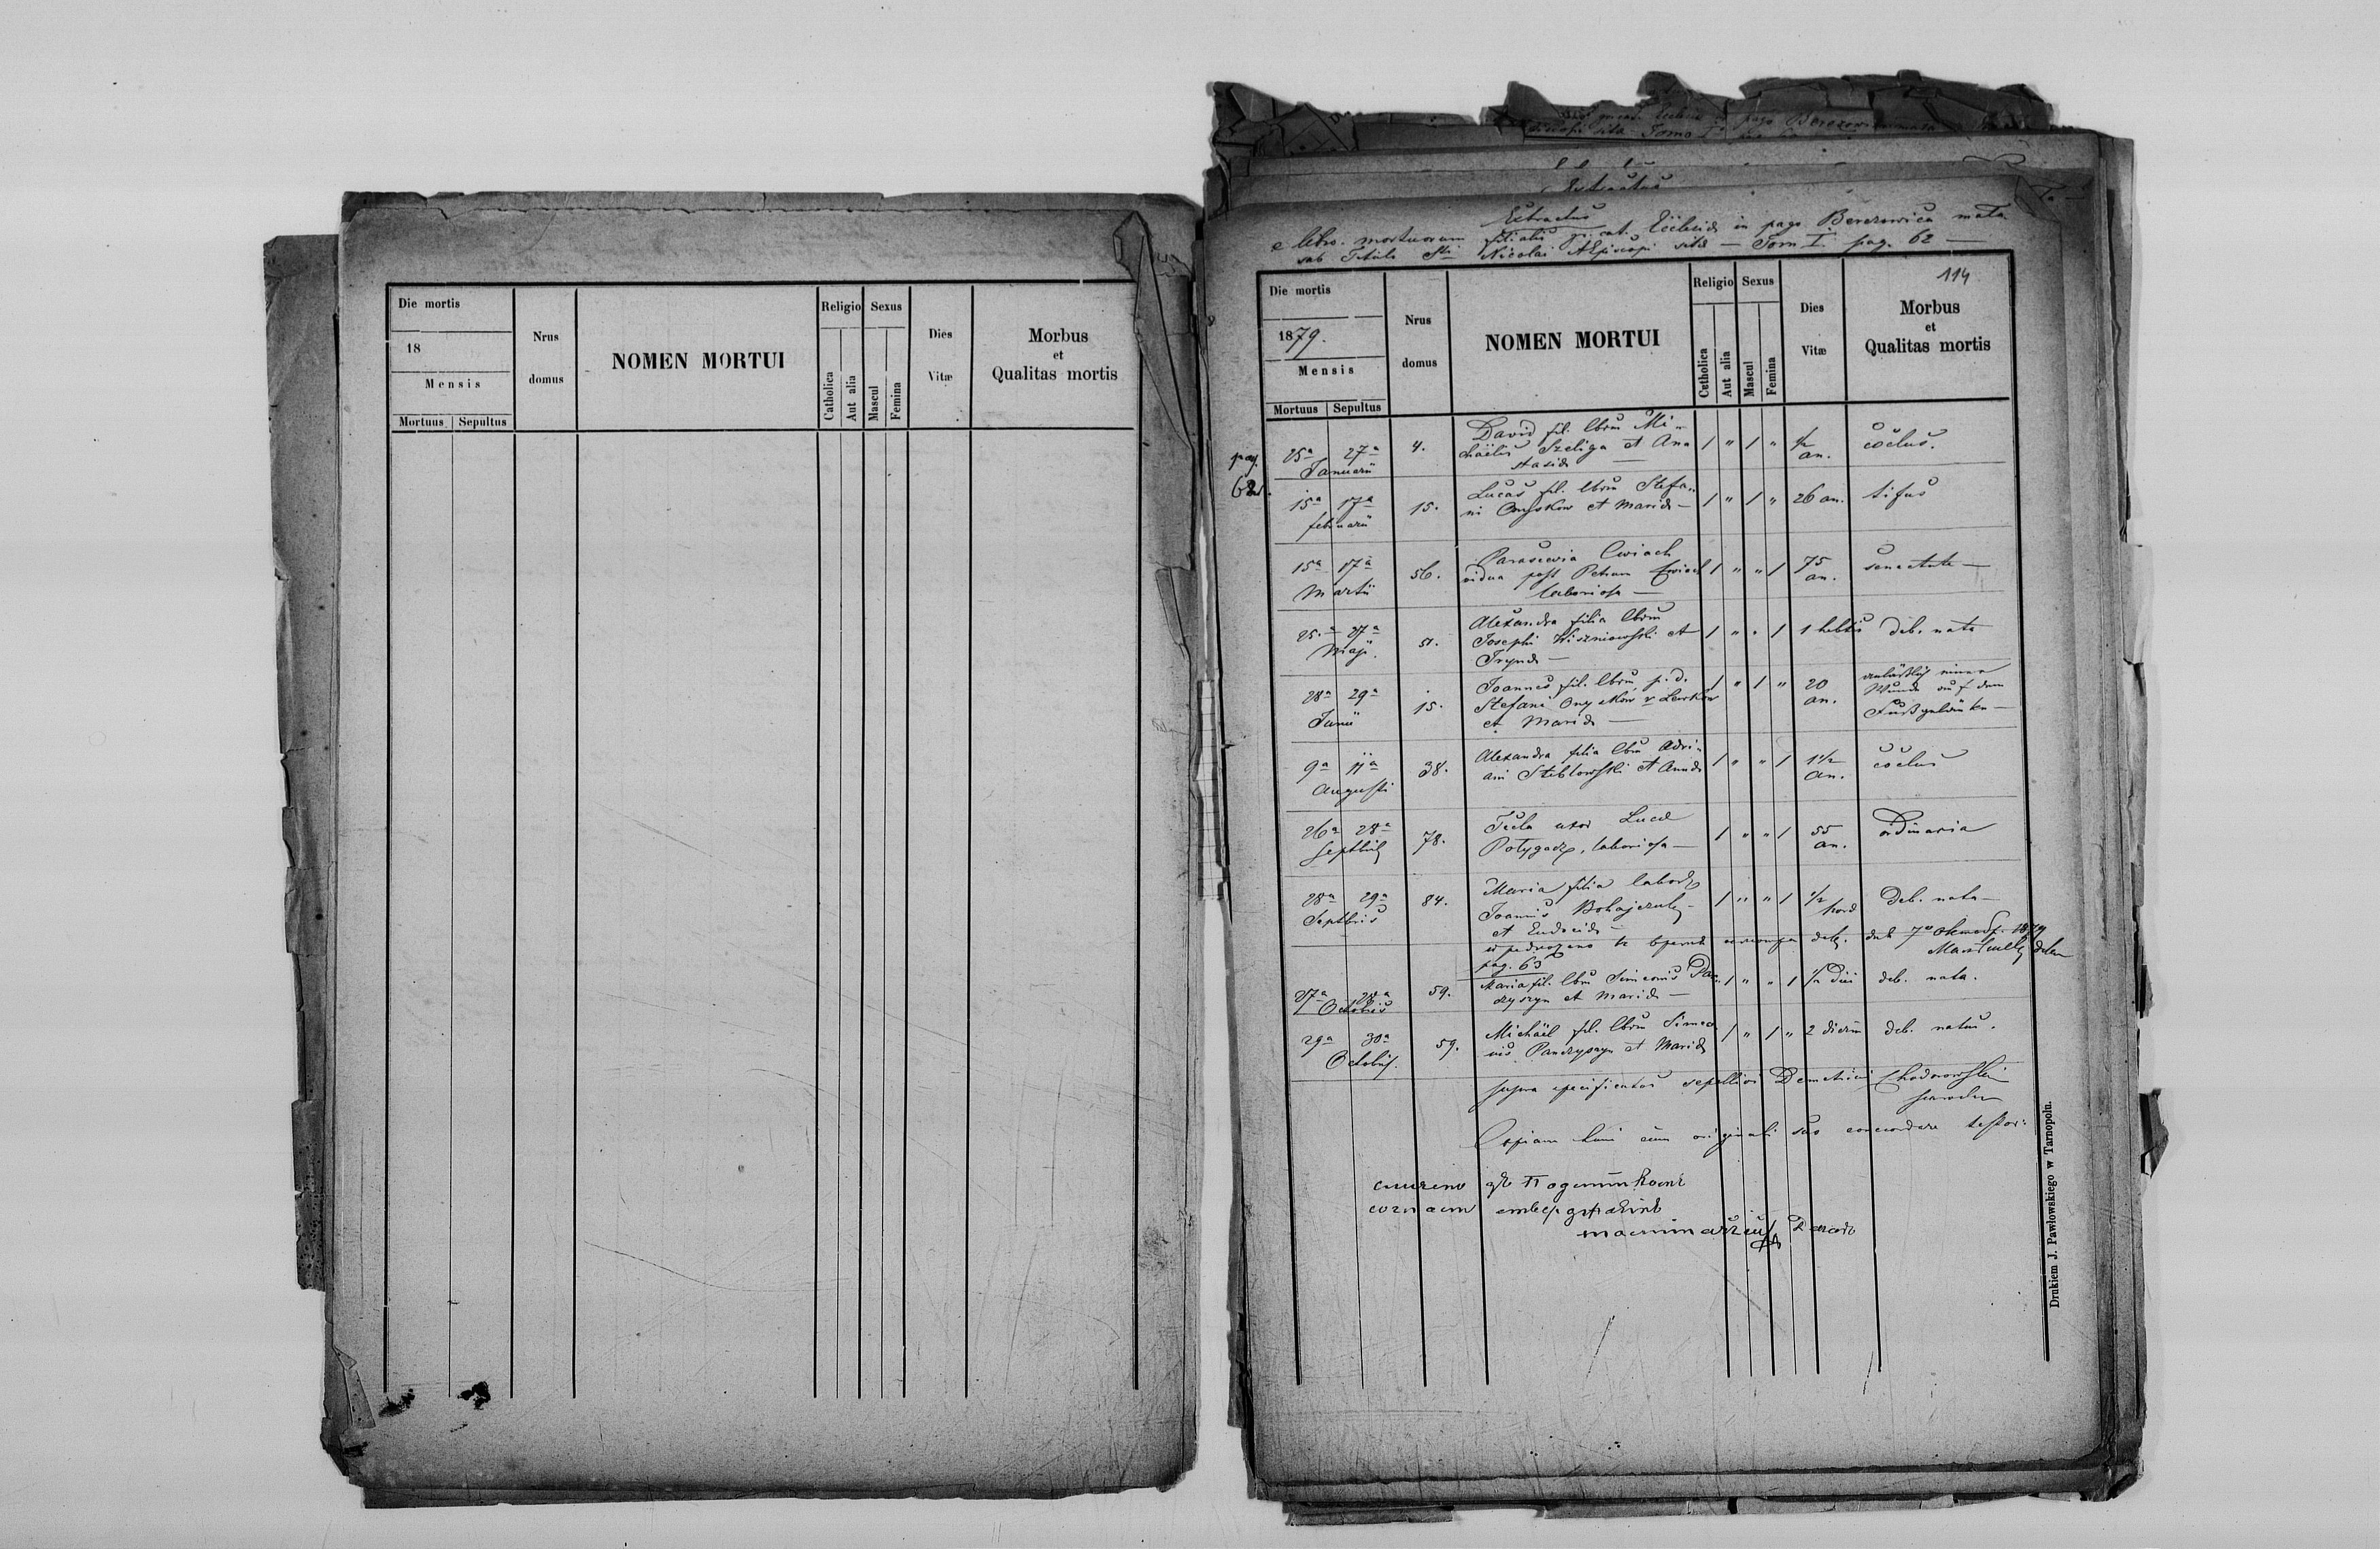 Die mortis
18
Mensis
Mortuus Sepultus
Nrus
domus
NOMEN MORTUI
Religio
Catholica
Aut alia
Sexus
Mascul
Femina
Dies
Vitæ
Morbus
et
Qualitas mortis
Extractus
e libro mortuorum filialis gr. cat. Ecclesiæ in pago Berezowica mała
sub Titulo Sti Nicolai AEpiscopi sitæ — Tom I. pag. 62 —
114
Die mortis
1879.
Mensis
Mortuus Sepultus
Nrus
domus
NOMEN MORTUI
Religio
Catholica
Aut alia
Sexus
Mascul
Femina
Dies
Vitæ
Morbus
et
Qualitas mortis
pag.
62.
25a 27a
Januarii
4.
David fil. lbrm Mi-
chaelis Szeliga et Ana
stasiæ
1 " 1 "
1/2
an.
coclus.
15a 17a
februarii
15.
Lucas fil. lbrm Stefa-
ni Onyskow et Mariæ —
1 " 1 "
26 an.
tifus
15a 17a
Martii
56.
Parascewia Cwiach
vidua post Petrum Cwiach
laboriosa —
1 " " 1
75
an.
senectute —
25.a 27a
Maji.
51.
Alexandra filia lbrm
Josephi Wiszniowski et
Irynæ —
1 " " 1
1 hebd.
deb. nata
28a 29a
Junii
15.
Joannes fil. lbrm p. d.
Stefani Onyskow v Lewkow
et Mariæ —
1 " 1 "
20
an.
einer
Wunde auf dem
Fußgelenke —
9a 11a
Augusti
38.
Alexandra filia lbrm Adri-
ani Steblowski et Annæ
1 " " 1
1 1/2
an.
coclus
26a 28a
Septbris
78.
Tecla uxor Lucæ
Potygacz, laboriosa —
1 " " 1
55
an.
ordinaria
28a 29a
Septbris
84.
Maria filia labor.
Joannis Bohajczuk —
et Eudociæ —
1 " " 1
1/2
horæ
Deb. nata —
1879
pag. 63
27a 28a
Octobris
59.
Maria fil. lbrm Simeonis Pan-
dzyszyn et Mariæ —
1 " " 1
1/2 diei
deb. nata.
29a 30a
Octobris.
59.
Michael fil. lbrm Simeo
nis Pandzyszyn et Mariæ
1 " 1 "
2 dierum
deb. natus.
supra specificatos sepelivi Demetrius Chodorowski
parochus
Copiam hanc cum originali suo concordare testor:
Drukiem J. Pawłowskiego w Tarnopolu.